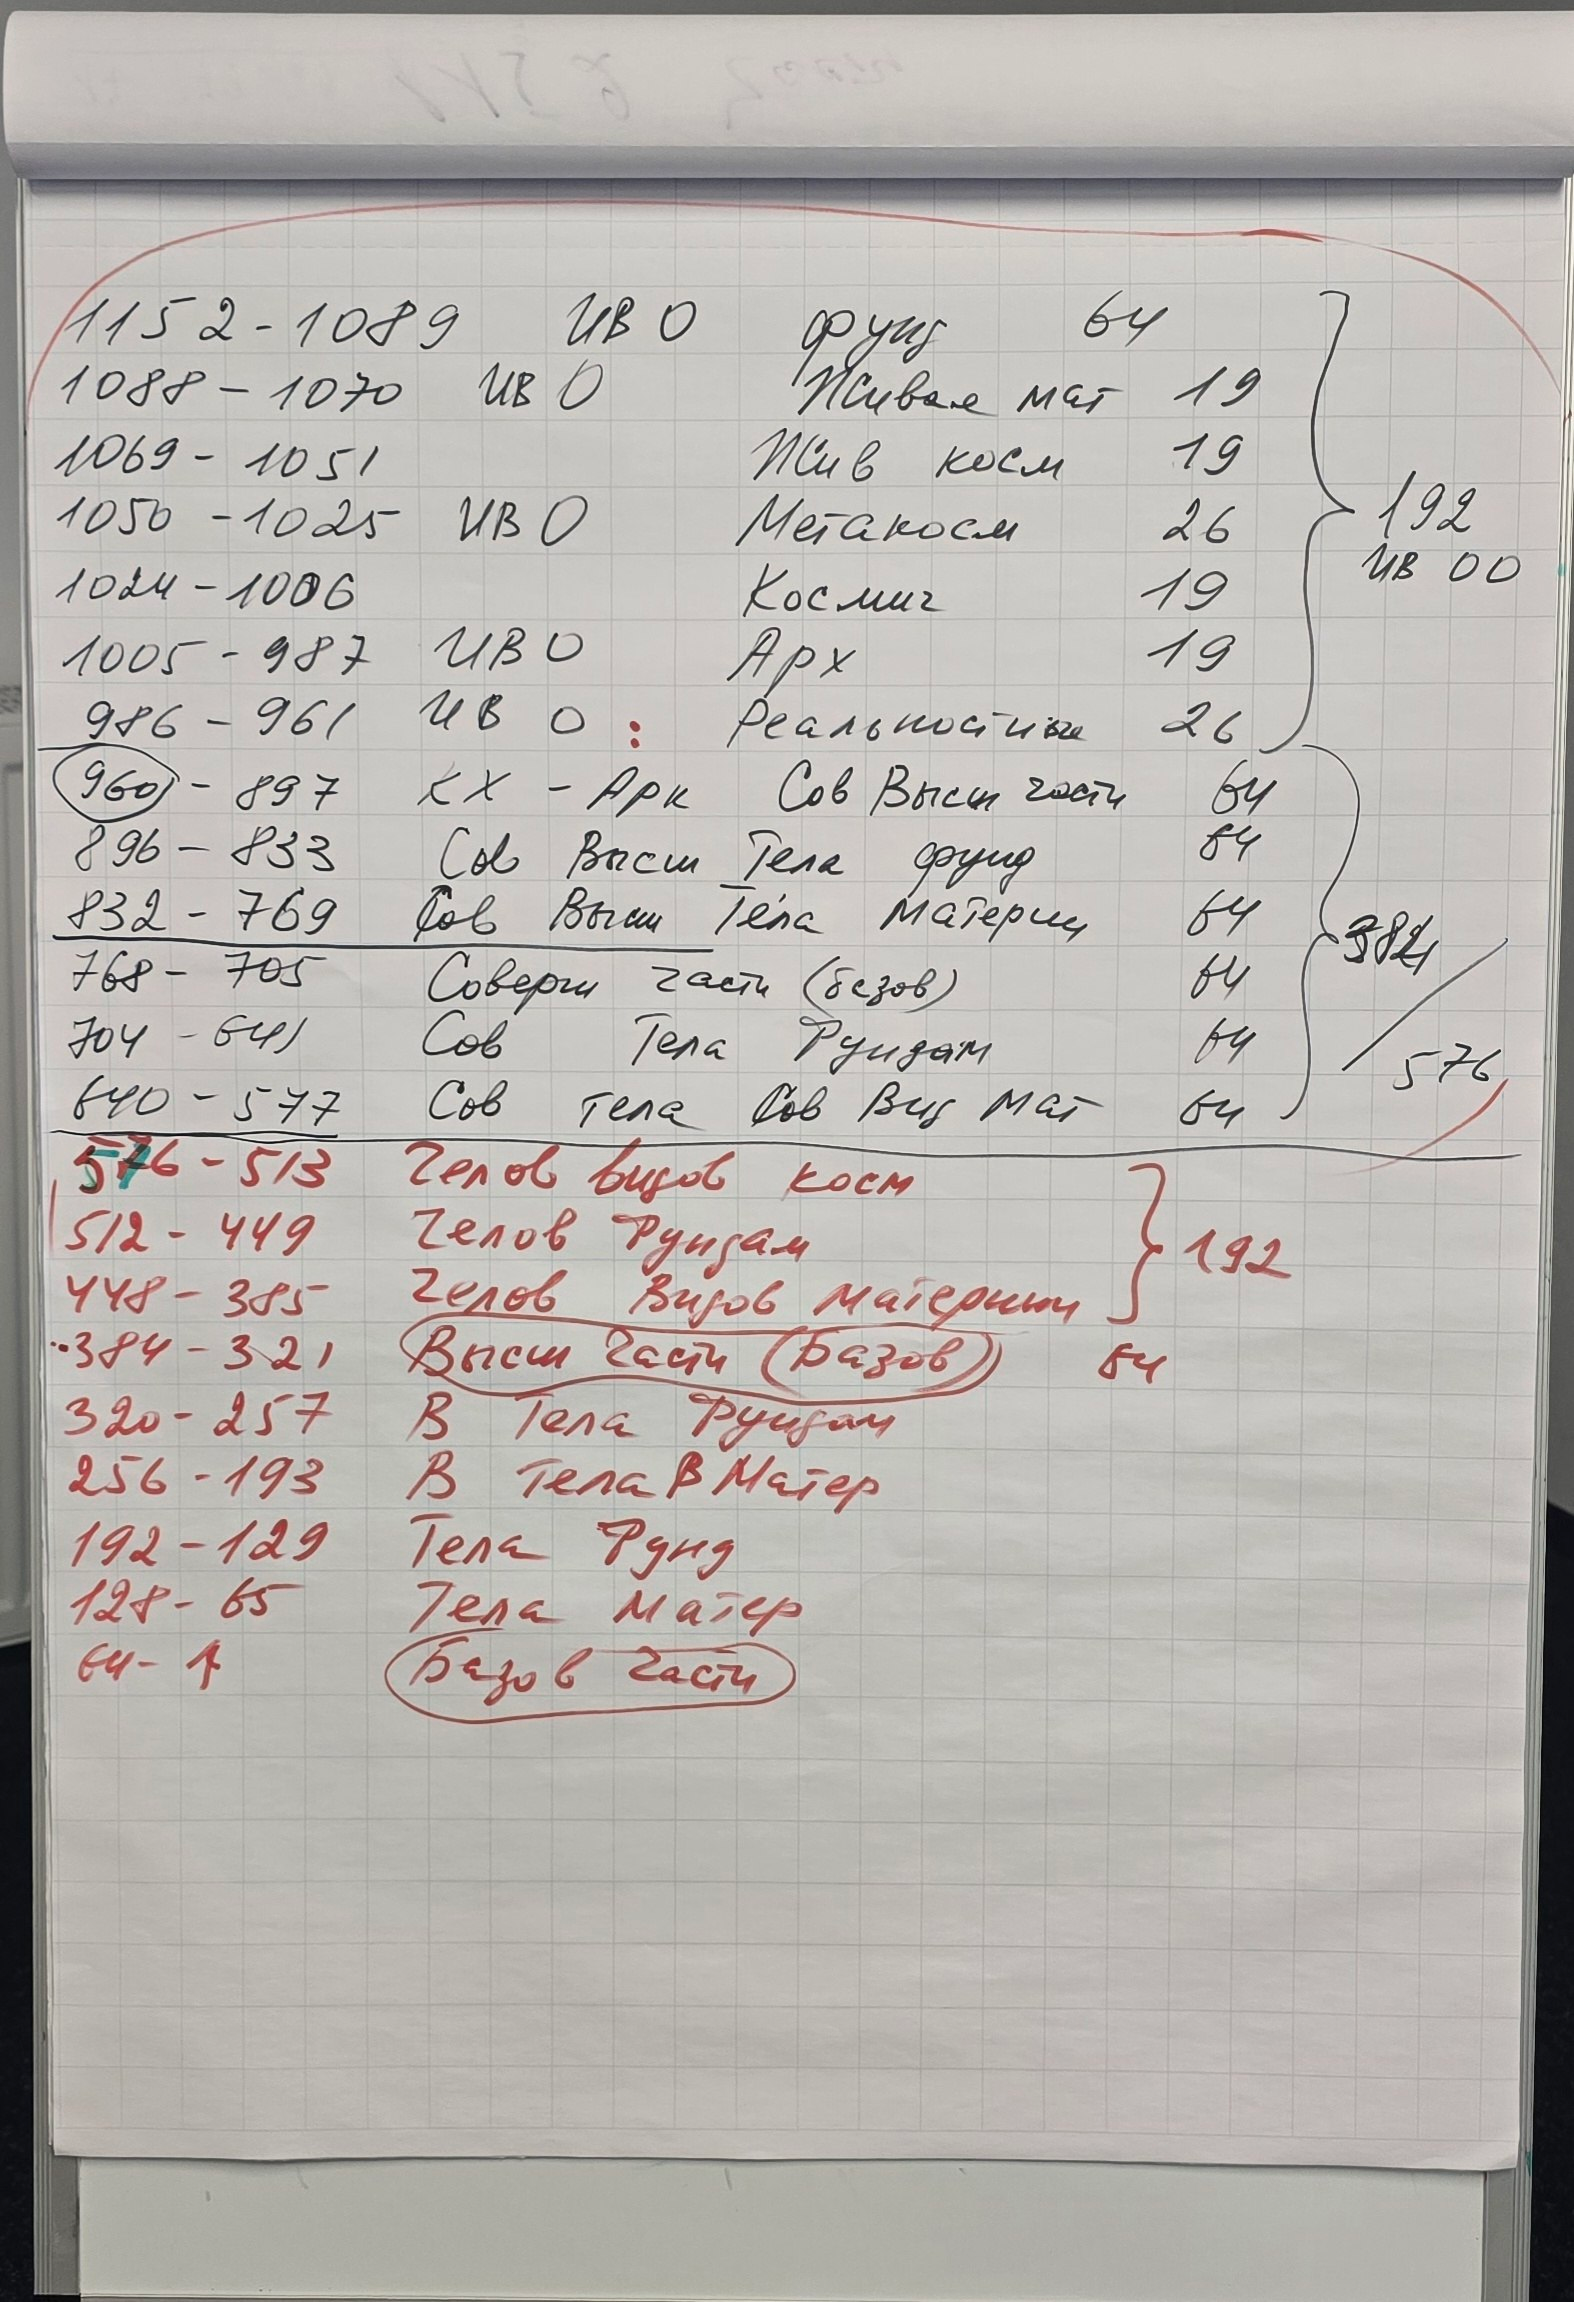 1152-1089 ИВО фунд 64
1088-1070 ИВО Живая мат 19
1069-1051 Жив косм 19
1050-1025 ИВО Метакосм 26
1024-1006 Космич 19
1005-987 ИВО Арх 19
986-961 ИВО: Реальностные 26
192
ИВ ОО
960-897 КХ - Арк Сов Высш части 64
896-833 Сов Высш Тела фунд 64
832-769 Сов Высш Тела материи 64
768-705 Соверш части (базов) 64
704-641 Сов Тела Фундам 64
640-577 Сов тела Сов Вид Мат 64
384/576
576-513 Челов видов косм
512-449 Челов Фундам
448-385 Челов Видов материи
192
384-321 Высш Части (Базов) 64
320-257 В Тела Фундам
256-193 В Тела В Матер
192-129 Тела Фунд
128-65 Тела Матер
64-1 Базов Части